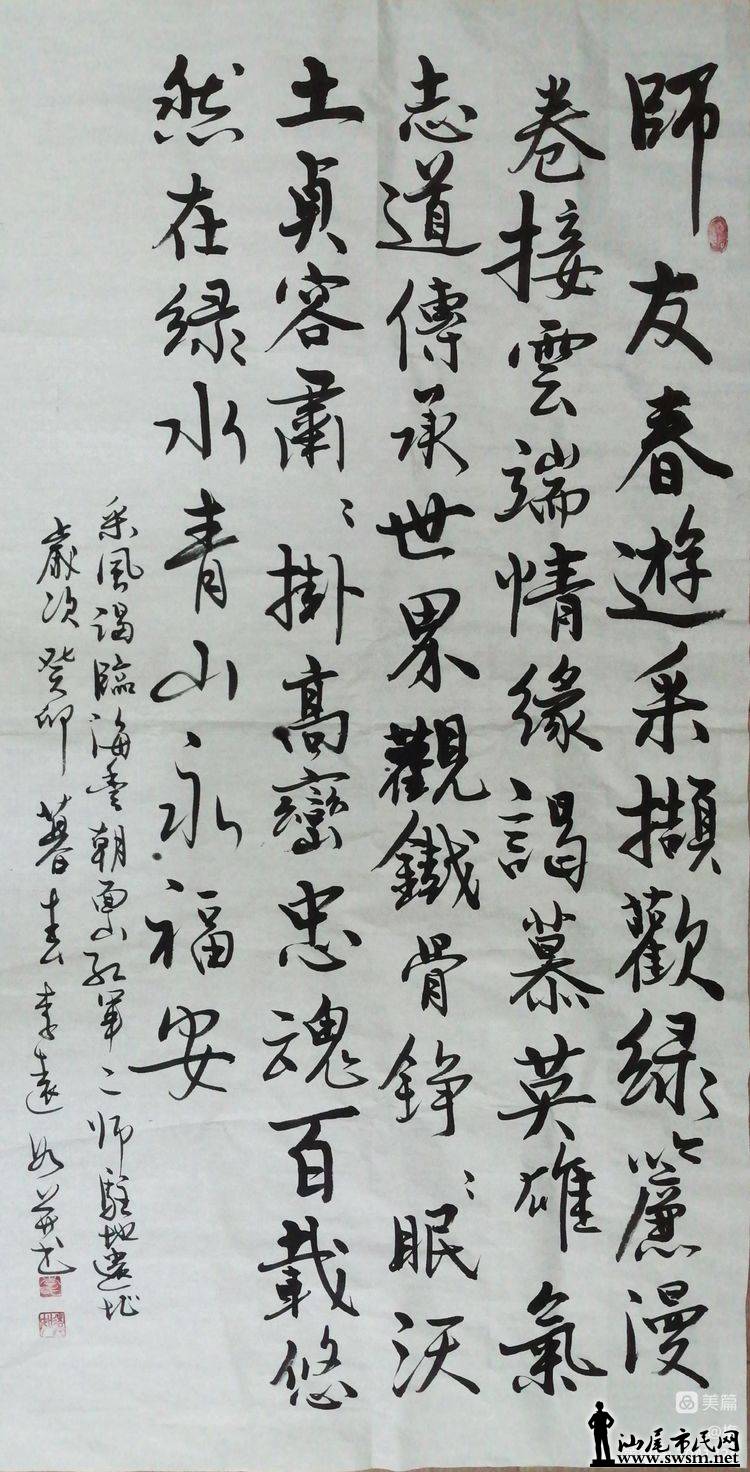 師友春遊采擷歡綠簾漫
卷接雲端情緣謁慕英雄氣
志道傳承世界觀鐵骨錚〻眠沃
土貞容肅〻掛高巒忠魂百載悠
然在綠水青山永福安
采風謁臨海豐朝面山紅軍二師駐地遺址
歲次癸卯暮春李遠如并书
美篇
汕尾市民网
www.swsm.net